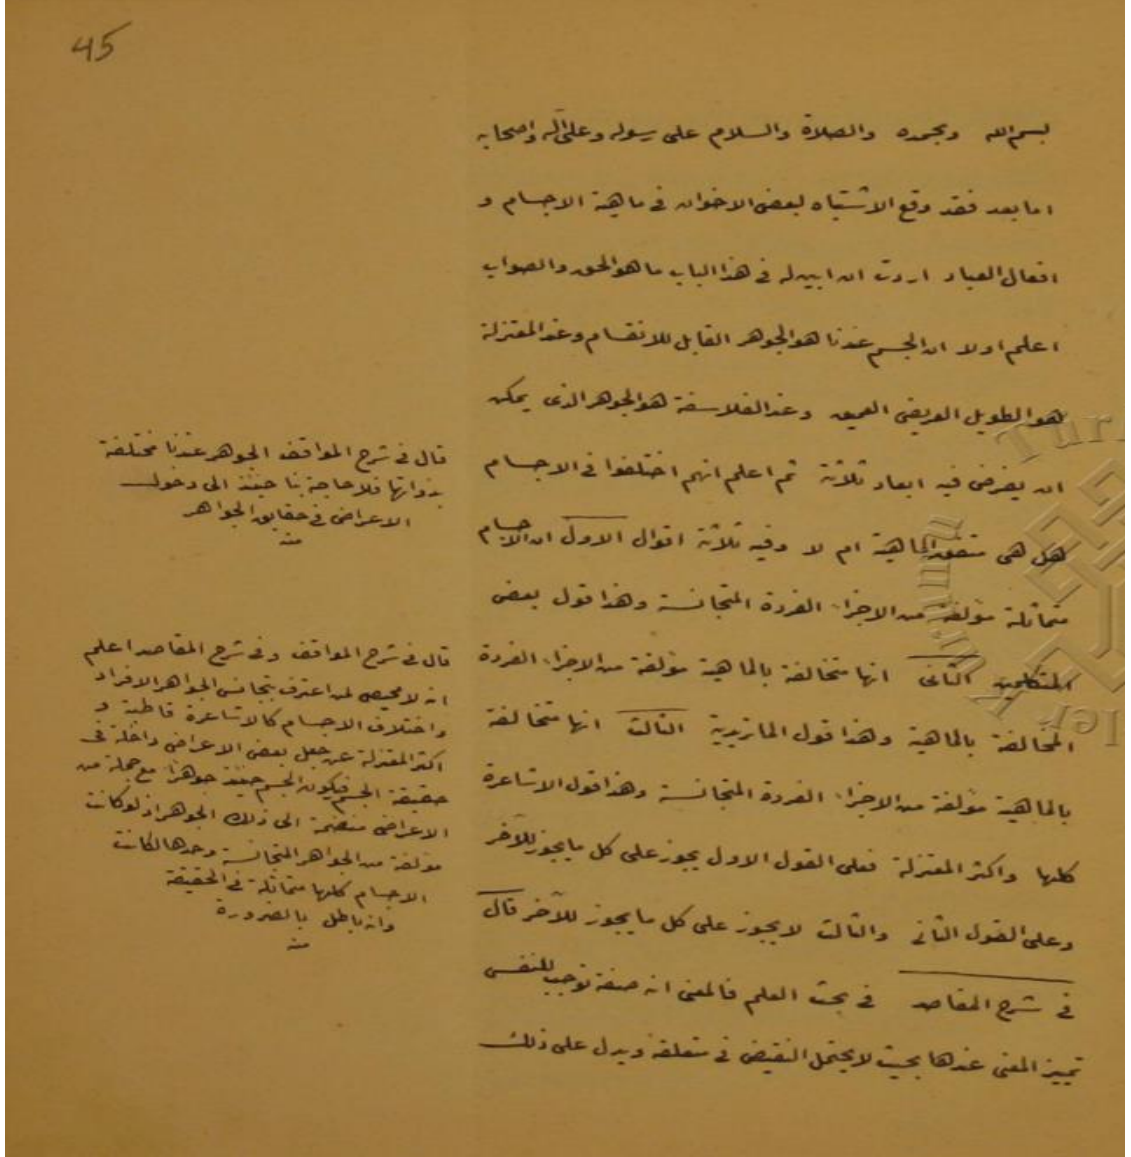 45
بسم الله وبحمده والصلاة والسلام على رسوله وعلى آله واصحابه
اما بعد فقد وقع الاشتباه لبعض الاخوان فى ماهية الاجسام و
افعال العباد اردت ان ابين له فى هذا الباب ما هو الحق والصواب
اعلم اولا ان الجسم عندنا هو الجوهر القابل للانقسام وعند المعتزلة
هو الطويل العريض العميق وعند الفلاسفة هو الجوهر الذى يمكن
ان يفرض فيه ابعاد ثلاثة ثم اعلم انهم اختلفوا فى الاجسام
هل هى متفق الماهية ام لا وفيه ثلاثة اقوال الاول ان الاجسام
متماثلة مؤلفة من الاجزاء الفردة المتجانسة وهذا قول بعض
المتكلمين الثانى انها متخالفة بالماهية مؤلفة من الاجزاء الفردة
المخالفة بالماهية وهذا قول الماتريدية الثالث انها متخالفة
بالماهية مؤلفة من الاجزاء الفردة المتجانسة وهذا قول الاشاعرة
كلها واكثر المعتزلة فعلى القول الاول يجوز على كل ما يجوز للآخر
وعلى القول الثانى والثالث لا يجوز على كل ما يجوز للآخر قال
فى شرح المقاصد فى بحث العلم فالمعنى انه صفة توجب للنفس
تمييز المعنى عندها بحيث لا يحتمل النقيض فى متعلقه ويدل على ذلك
قال فى شرح المواقف الجوهر عندنا مختلفة
بذواتها فلا حاجة بنا حينئذ الى دخول
الاعراض فى حقايق الجواهر
منه
قال فى شرح المواقف وفى شرح المقاصد اعلم
انه لا محيص لمن اعترف بتجانس الجواهر الافراد
واختلاف الاجسام كالاشاعرة قاطبة و
اكثر المعتزلة عن جعل بعض الاعراض داخلة فى
حقيقة الجسم فيكون الجسم حينئذ جوهرا مع جملة من
الاعراض منضمة الى ذلك الجوهر اذ لو كانت
مؤلفة من الجواهر المتجانسة وحدها لكانت
الاجسام كلها متماثلة فى الحقيقة
وانه باطل بالضرورة
منه